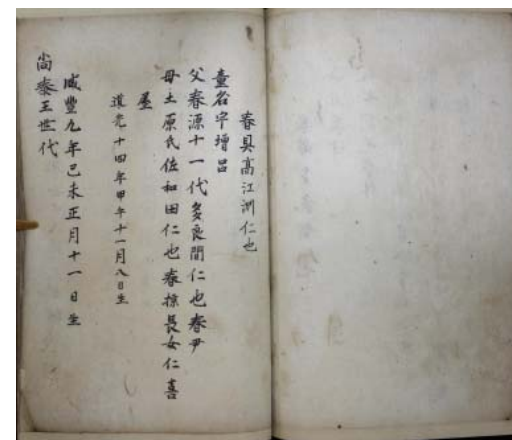 春具高江洲仁也
童名宇增呂
父春源十一代多良間仁也春尹
母土原氏佐和田仁也春掠長女仁喜
屋
道光十四年甲午十一月八日生
咸豐九年己未正月十一日生
尚泰王世代